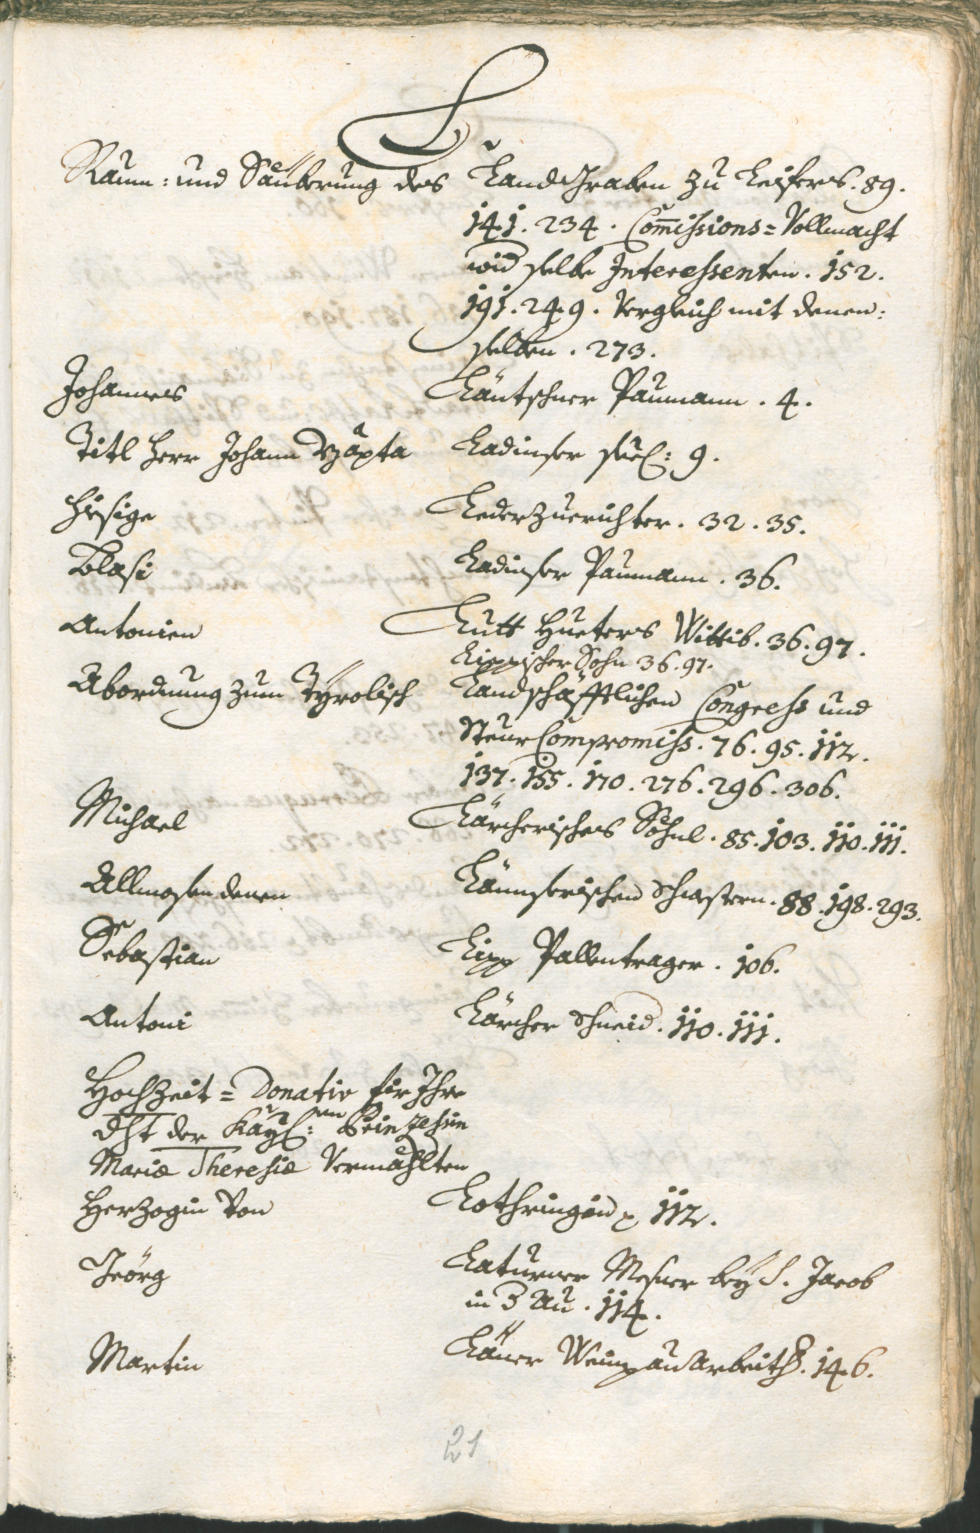 L
Raum: und Säuberung des Land Graben zu Leifers. 89.
141. 234. Com̅issions=Vollmacht
wid selbe Interessenten. 152.
191. 249. Vergleich mit denen:
selben. 273.
Johannes Läntschner Paumann. 4.
Titl Herr Johann Bapta Ladinser 9.
Hiesige Lederzuerichter. 32. 35.
Blasi Ladinser Paumann. 36.
Antonien Lutt Hueters Wittib. 36. 97.
Lippischer Sohn 36. 97.
Abordnung zum Tyrolisch Landschäfftlichen Congress und
Steur Compromiss. 76. 95. 112.
137. 155. 170. 276. 296. 306.
Michael Lärcherisches Söhnl. 85. 103. 110. 111.
Allmosen denen Schwestern. 88. 198. 293.
Sebastian Lipp Pallentrager. 106.
Antoni Lärcher Schneid. 110. 111.
Hochzeit=Donativ für Ihro
Dht der Kayl:
Mariæ Theresiæ Vermählten
Herzogin Von Lothringen 112.
Geörg Laturner Mesner bey S. Jacob
in der Au. 114.
Martin 146.
21